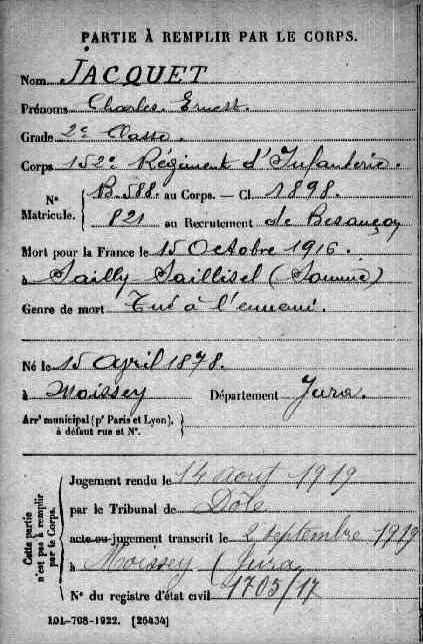 PARTIE À REMPLIR PAR LE CORPS.
Nom JACQUET
Prénoms Charles Ernest.
Grade 2e Classe.
Corps 152e Régiment d'Infanterie.
N° Matricule. { B 588. au Corps. — Cl. 1898.
821 au Recrutement de Besançon
Mort pour la France le 15 Octobre 1916.
à Sailly Saillisel (Somme)
Genre de mort Tué à l'ennemi.
Né le 15 April 1878.
à Moissey Département Jura.
Arrt municipal (pr Paris et Lyon),
à défaut rue et N°. }
Cette partie n'est pas à remplir par le Corps. {
Jugement rendu le 14 août 1919
par le Tribunal de Dôle
acte ou jugement transcrit le 2 septembre 1919
à Moissey (Jura
N° du registre d'état civil 4705/17
101-708-1922. [26434]